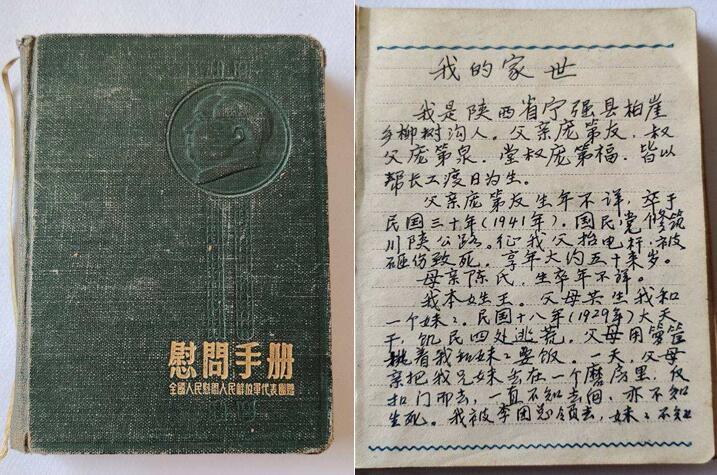 慰問手册
全國人民慰問人民解放軍代表團贈
我的家世
我是陕西省宁强县柏崖
乡柳树沟人。父亲庞第友，叔
父庞第泉，堂叔庞第福，皆以
帮长工度日为生。
父亲庞第友生年不详，卒于
民国三十年(1941年)。国民党修筑
川陕公路。征我父抬电杆，被
砸伤致死，享年大约五十来岁。
母亲陈氏，生卒年不详。
我本姓王。父母共生我和
一个妹妹。民国十八年(1929年)大天
干，饥民四处逃荒，父母用箩筐
挑着我和妹妹要饭。一天，父母
亲把我兄妹丢在一个磨房里，反
扣门而去，一直不知去向，亦不知
生死。我被李团总领去，妹妹不知